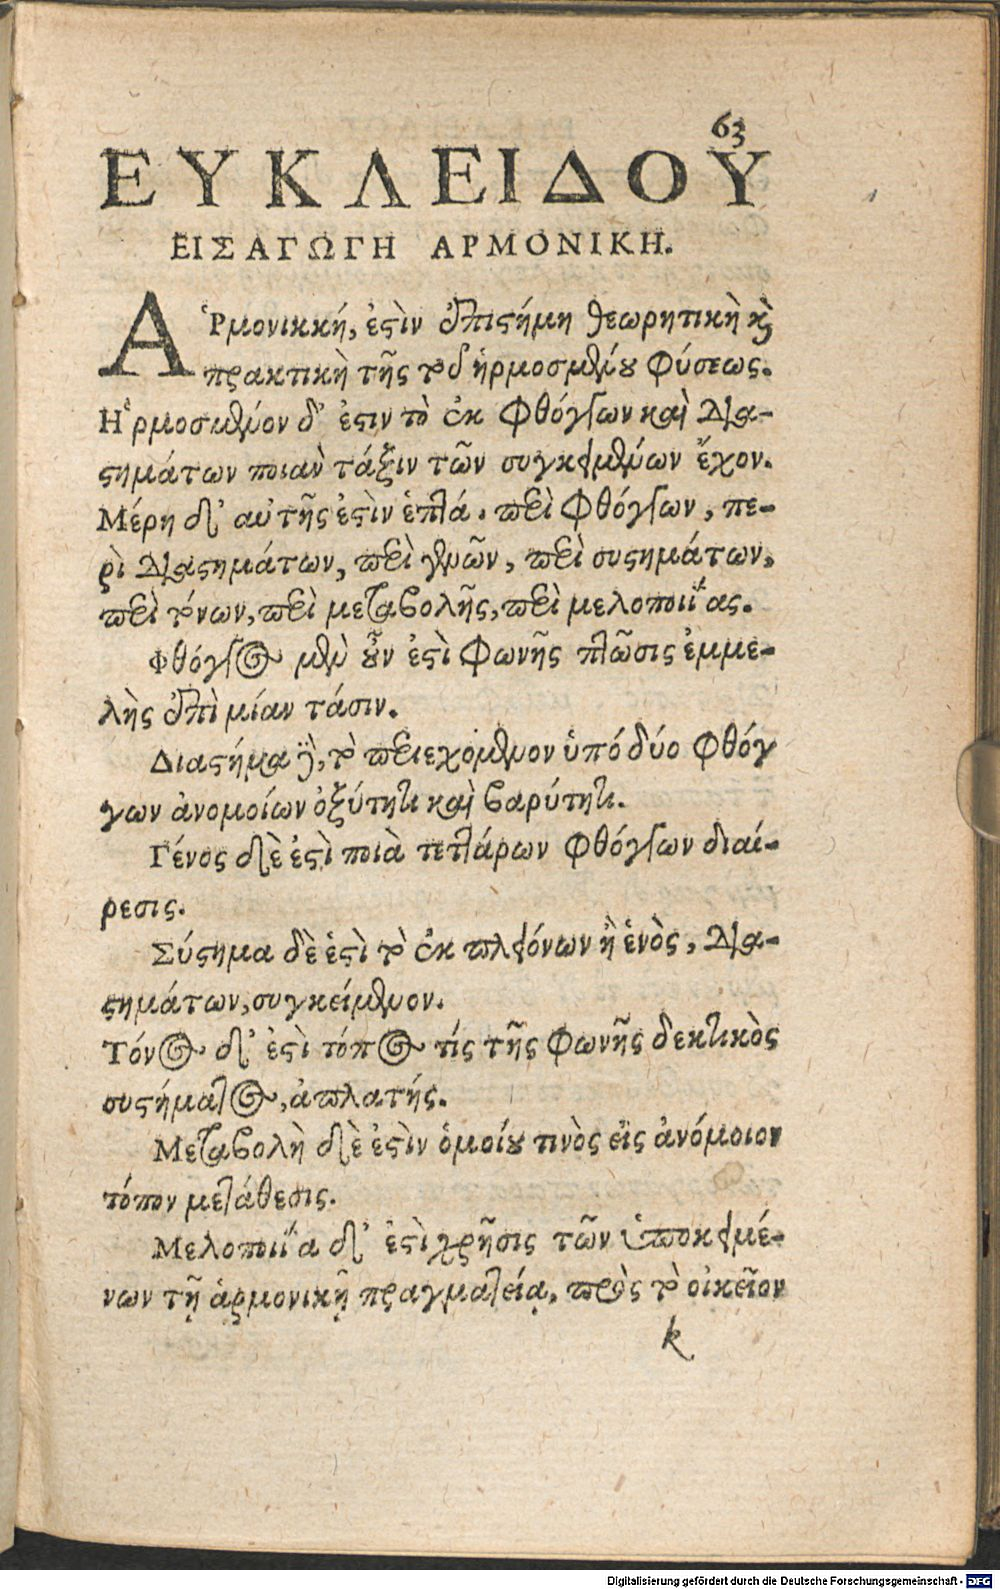 63
ΕΥΚΛΕΙΔΟΥ
ΕΙΣΑΓΩΓΗ ΑΡΜΟΝΙΚΗ.
Ἁρμονικκή, ἐϛὶν ἐπιϛήμη θεωρητικὴ κὶ
πρακτικὴ τῆς τοῦ ἡρμοσμένου φύσεως.
Ἡρμοσμένον δ' ἐϛιν τὸ ἐκ φθόγγων καὶ δια-
ϛημάτων ποιαν τάξιν τῶν συγκειμένων ἔχον.
Μέρη δ' αὐτῆς ἐϛὶν ἑπτά. περὶ φθόγγων, πε-
ρὶ διαϛημάτων, περὶ γενῶν, περὶ συϛημάτων,
περὶ τόνων, περὶ μεταβολῆς, περὶ μελοποιΐας.
Φθόγγος μὲν οὖν ἐϛὶ φωνῆς πτῶσις ἐμμε-
λὴς ἐπὶ μίαν τάσιν.
Διαϛήμα δὲ, τὸ περιεχομενον ὑπό δύο φθόγ
γων ἀνομοίων ὀξύτητι καὶ βαρύτητι.
Γένος δὲ ἐϛὶ ποιὰ τεττάρων φθόγγων διαί-
ρεσις.
Σύϛημα δὲ ἐϛὶ τὸ ἐκ πλειόνων ἢ ἑνὸς, δια-
ϛημάτων, συγκείμενον.
Τόνος δ' ἐϛὶ τόπος τίς τῆς φωνῆς δεκτικὸς
συϛήματος, ἀπλατής.
Μεταβολὴ δὲ ἐϛὶν ὁμοίου τινὸς εἰς ἀνόμοιον
τόπον μετάθεσις.
Μελοποιΐα δ' ἐϛὶ χρῆσις τῶν ὑποκειμέ-
νων τῇ ἁρμονικῇ πραγματείᾳ, πρὸς τὸ οἰκεῖον
k
Digitalisierung gefördert durch die Deutsche Forschungsgemeinschaft - DFG